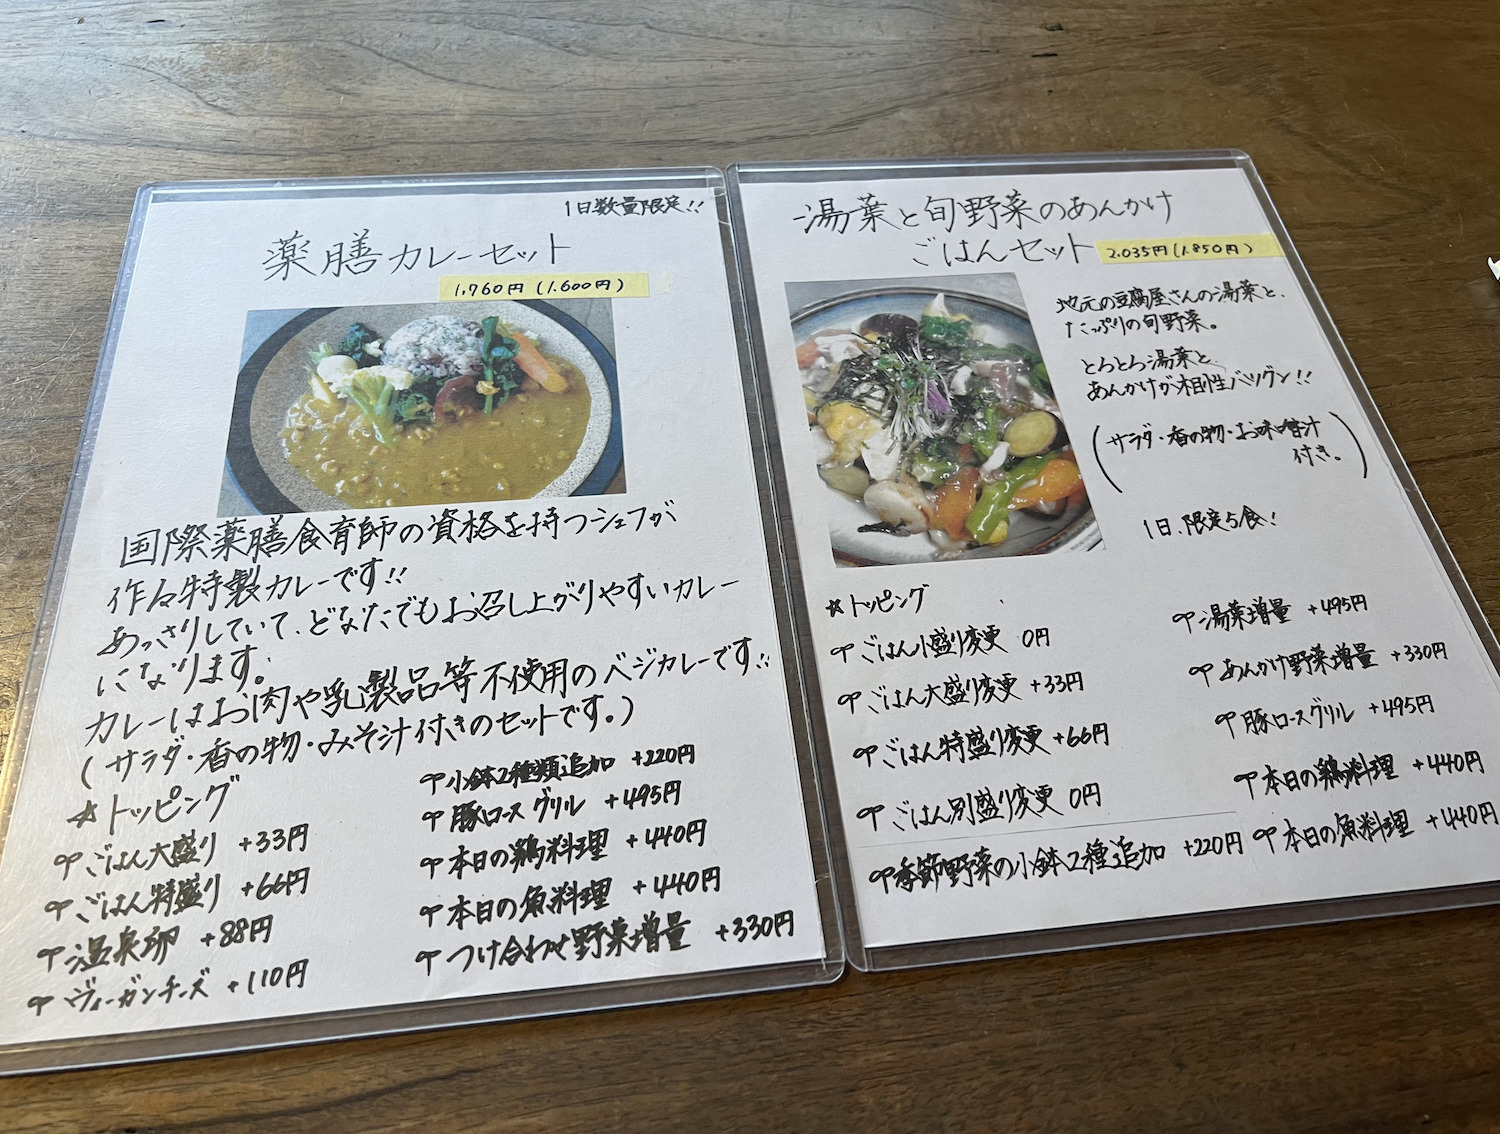 1日数量限定!!
薬膳カレーセット
1,760円(1,600円)
国際薬膳食育師の資格を持つシェフが
作る特製カレーです!!
あっさりしていて、どなたでもお召し上がりやすいカレー
になります。
カレーはお肉や乳製品等不使用のベジカレーです!!
(サラダ・香の物・みそ汁付きのセットです。)
☆トッピング
ごはん大盛り +33円
ごはん特盛り +66円
温泉卵 +88円
ヴィーガンチーズ +110円
小鉢2種類追加 +220円
豚ロースグリル +495円
本日の鶏料理 +440円
本日の魚料理 +440円
つけ合わせ野菜増量 +330円
湯葉と旬野菜のあんかけ
ごはんセット
2,035円(1,850円)
地元の豆腐屋さんの湯葉と、
たっぷりの旬野菜。
とろとろ湯葉と、
あんかけが相性バツグン!!
(サラダ・香の物・お味噌汁
付き。)
1日、限定5食!
☆トッピング
ごはん小盛り変更 0円
ごはん大盛り変更 +33円
ごはん特盛り変更 +66円
ごはん別盛り変更 0円
季節野菜の小鉢2種追加 +220円
湯葉増量 +495円
あんかけ野菜増量 +330円
豚ロースグリル +495円
本日の鶏料理 +440円
本日の魚料理 +440円